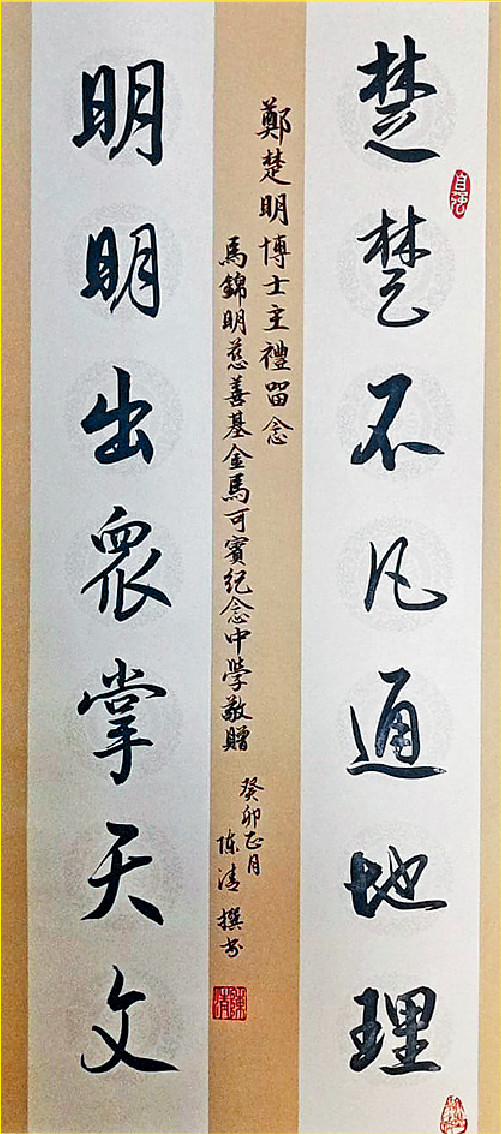 楚楚不凡通地理
自強
鄭楚明博士主禮留念
馬錦明慈善基金馬可賓紀念中學敬贈
癸卯正月
陈清撰书
陳清
明明出眾掌天文